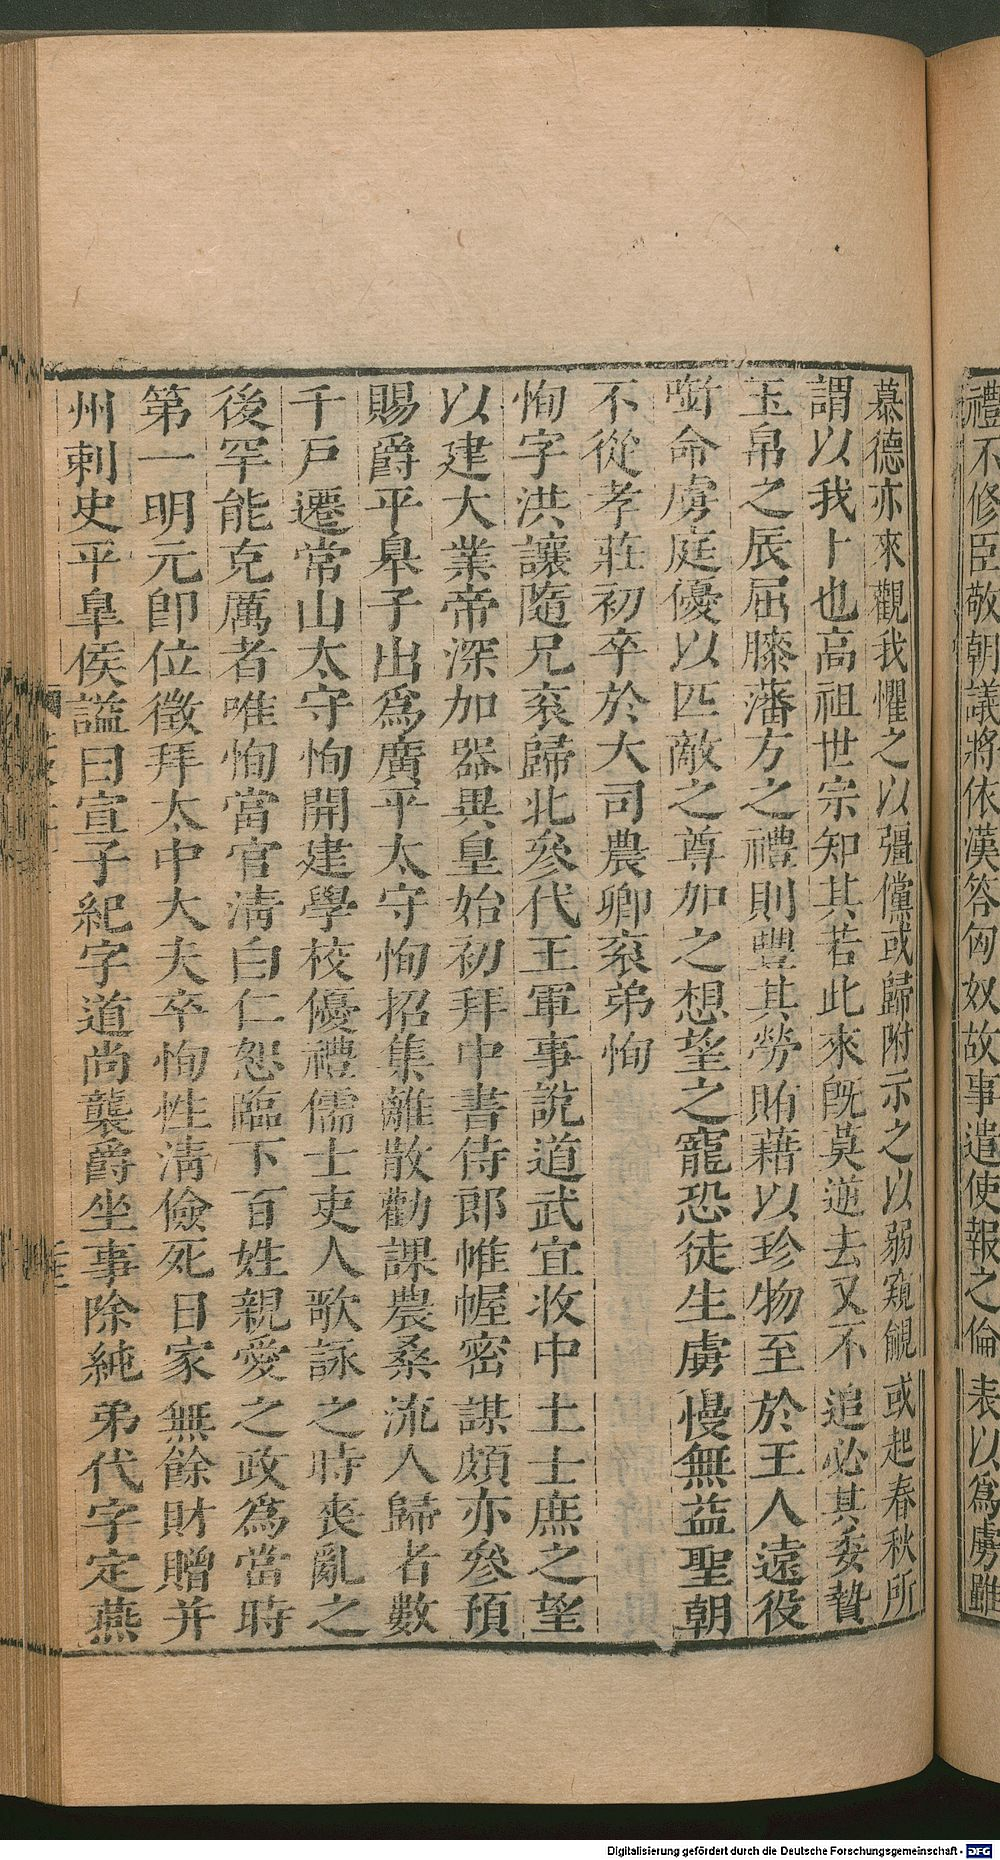 禮不修臣敬朝議將依漢答匈奴故事遣使報之倫表以爲虜雖
慕德亦來觀我懼之以彊儻或歸附示之以弱窺覦或起春秋所
謂以我卜也高祖世宗知其若此來旣莫逆去又不追必其委贄
玉帛之辰屈膝藩方之禮則豐其勞賄藉以珍物至於王人遠役
啣命虜庭優以匹敵之尊加之想望之寵恐徒生虜慢無益聖朝
不從孝莊初卒於大司農卿衮弟恂
恂字洪讓隨兄衮歸北參代王軍事說道武宜收中土士庶之望
以建大業帝深加器異皇始初拜中書侍郎帷幄密謀頗亦參預
賜爵平臯子出爲廣平太守恂招集離散勸課農桑流人歸者數
千戸遷常山太守恂開建學校優禮儒士吏人歌詠之時喪亂之
後罕能克厲者唯恂當官清白仁恕臨下百姓親愛之政爲當時
第一明元卽位徵拜太中大夫卒恂性清儉死日家無餘財贈并
州刺史平臯侯謚曰宣子紀字道尚襲爵坐事除純弟代字定燕
Digitalisierung gefördert durch die Deutsche Forschungsgemeinschaft - DFG